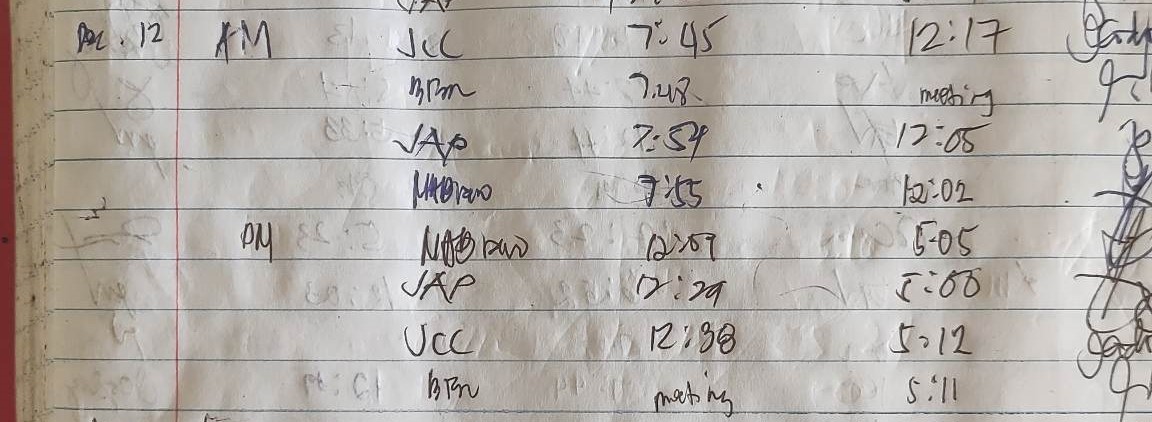 Dec. 12 AM JCC 7:45 12:17
BBm 7:48 meeting
JAP 7:54 12:05
7:55 12:02
PM 12:07 5:05
JAP 12:29 5:00
JCC 12:38 5:12
BBm meeting 5:11